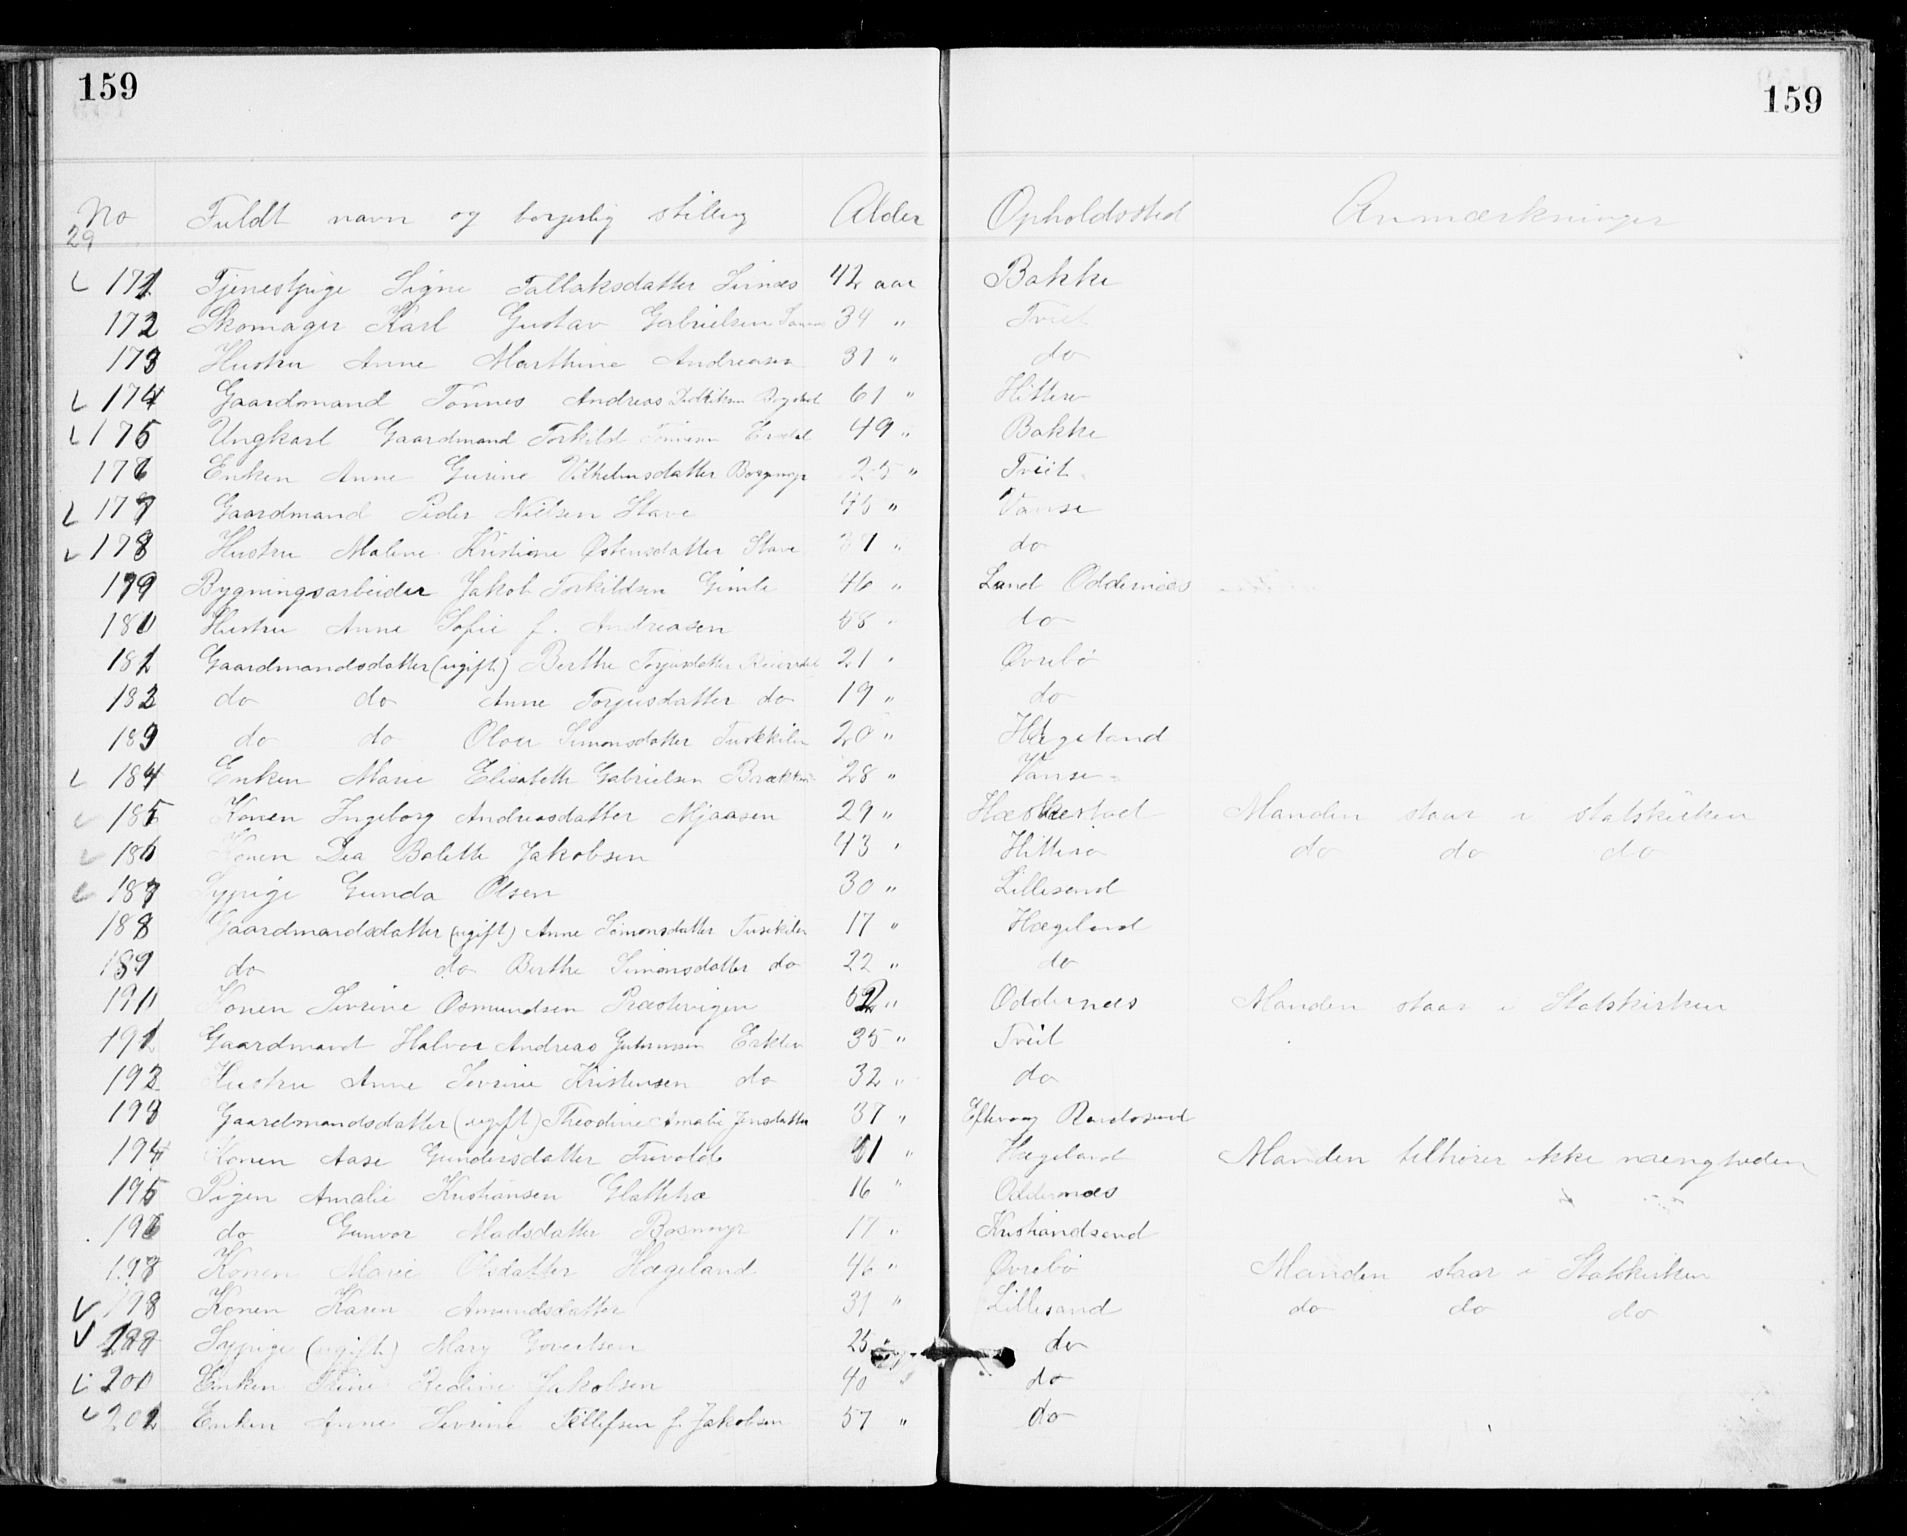 159 159
No Fuldt navn og borgerlig stilling Alder Opholdssted Anmærkninger
29
171 Tjenestpige Signe Tallaksdatter Sirnæs 42 aar Bakke
172 Skomager Karl Gustav Gabrielsen 34 " Tveit
173 Hustru Anne Marthine Andreasen 31 " do
174 Gaardmand Tønnes Andreas Didriksen 61 " Hitterø
175 Ungkarl Gaardmand Torkild 49 " Bakke
176 Enken Anne Gurine Vilhelmsdatter Bosmyr 25 " Tveit
177 Gaardmand Peder Nielsen Stave 46 " Vanse
178 Hustru Malene Kristine Østensdatter Stave 37 " do
179 Bygningsarbeider Jakob Torkildsen Gimle 46 " Land Oddernæs
180 Hustru Anne Sofie f. Andreasen 58 " do
181 Gaardmandsdatter (ugift) Berthe Torjusdatter 21 " Øvrebø
182 do do Anne Torjusdatter do 19 " do
183 do do Olava Simonsdatter 20 " Hægeland
184 Enken Marie Elisabeth Gabrielsen 28 " Vanse
185 Konen Ingeborg Andreasdatter Mjaasen 29 " Hæskestad Manden staar i statskirken
186 Konen Dea Bolette Jakobsen 43 " Hitterø do do do
187 Sypige Gunda Olsen 30 " Lillesand
188 Gaardmandsdatter (ugift) Anne Simonsdatter 17 " Hægeland
189 do do Berthe Simonsdatter do 22 " do
190 Konen Sevrine Osmundsen Præstvigen 52 " Oddernæs Manden staar i Statskirken
191 Gaardmand Halvor Andreas 35 " Tveit
192 Hustru Anne Sevrine Kristensen do 32 " do
193 Gaardmandsdatter (ugift) Theodine Amalie Jensdatter 37 " Eftevaag Randøsund
194 Konen Aase Gundersdatter 61 " Hægeland Manden tilhører ikke menigheden
195 Pigen Amalie Kristiansen Glattetræ 16 " Oddernæs
196 do Gunvor Madsdatter Bosmyr 17 " Kristiandsand
197 Konen Marie Olsdatter Hægeland 46 " Øvrebø Manden staar i Statskirken
198 Konen Karen Amundsdatter 31 " Lillesand do do do
199 Sypige (ugift) Mary Govertsen 25 do
200 Enken Trine Jakobsen 40 " do
201 Enken Anne Sevrine Tellefsen f. Jakobsen 57 " do